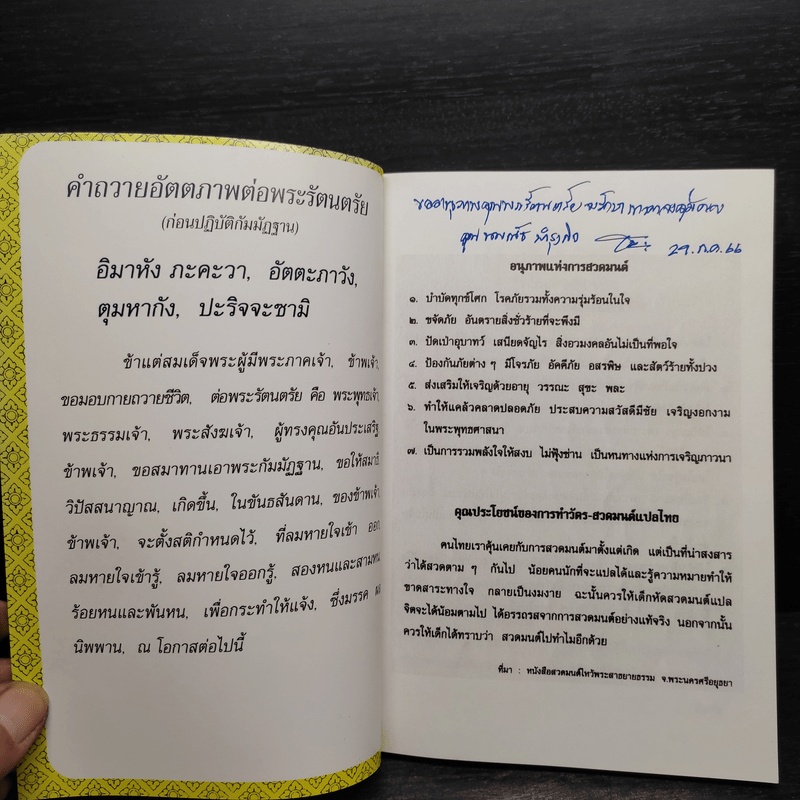 คำถวายอัตตภาพต่อพระรัตนตรัย
(ก่อนปฏิบัติกัมมัฏฐาน)
อิมาหัง ภะคะวา, อัตตะภาวัง,
ตุมหากัง, ปะริจจะชามิ
ข้าแต่สมเด็จพระผู้มีพระภาคเจ้า, ข้าพเจ้า,
ขอมอบกายถวายชีวิต, ต่อพระรัตนตรัย คือ พระพุทธเจ้า,
พระธรรมเจ้า, พระสังฆเจ้า, ผู้ทรงคุณอันประเสริฐ
ข้าพเจ้า, ขอสมาทานเอาพระกัมมัฏฐาน, ขอให้สมาธิ
วิปัสสนาญาณ, เกิดขึ้น, ในขันธสันดาน, ของข้าพเจ้า,
ข้าพเจ้า, จะตั้งสติกำหนดไว้, ที่ลมหายใจเข้า ออก,
ลมหายใจเข้ารู้, ลมหายใจออกรู้, สองหนและสามหน
ร้อยหนและพันหน, เพื่อกระทำให้แจ้ง, ซึ่งมรรค ผล
นิพพาน, ณ โอกาสต่อไปนี้
๒๙. ก.ค. ๖๖
อนุภาพแห่งการสวดมนต์
๑. บำบัดทุกข์โศก โรคภัยรวมทั้งความรุ่มร้อนในใจ
๒. ขจัดภัย อันตรายสิ่งชั่วร้ายที่จะพึงมี
๓. ปัดเป่าอุบาทว์ เสนียดจัญไร สิ่งอวมงคลอันไม่เป็นที่พอใจ
๔. ป้องกันภัยต่าง ๆ มีโจรภัย อัคคีภัย อสรพิษ และสัตว์ร้ายทั้งปวง
๕. ส่งเสริมให้เจริญด้วยอายุ วรรณะ สุขะ พละ
๖. ทำให้แคล้วคลาดปลอดภัย ประสบความสวัสดีมีชัย เจริญงอกงาม
ในพระพุทธศาสนา
๗. เป็นการรวมพลังใจให้สงบ ไม่ฟุ้งซ่าน เป็นหนทางแห่งการเจริญภาวนา
คุณประโยชน์ของการทำวัตร-สวดมนต์แปลไทย
คนไทยเราคุ้นเคยกับการสวดมนต์มาตั้งแต่เกิด แต่เป็นที่น่าสงสาร
ว่าได้สวดตาม ๆ กันไป น้อยคนนักที่จะแปลได้และรู้ความหมายทำให้
ขาดสาระทางใจ กลายเป็นงมงาย ฉะนั้นควรให้เด็กหัดสวดมนต์แปล
จิตจะได้น้อมตามไป ได้อรรถรสจากการสวดมนต์อย่างแท้จริง นอกจากนั้น
ควรให้เด็กได้ทราบว่า สวดมนต์ไปทำไมอีกด้วย
ที่มา : หนังสือสวดมนต์ไหว้พระสาธยายธรรม จ.พระนครศรีอยุธยา